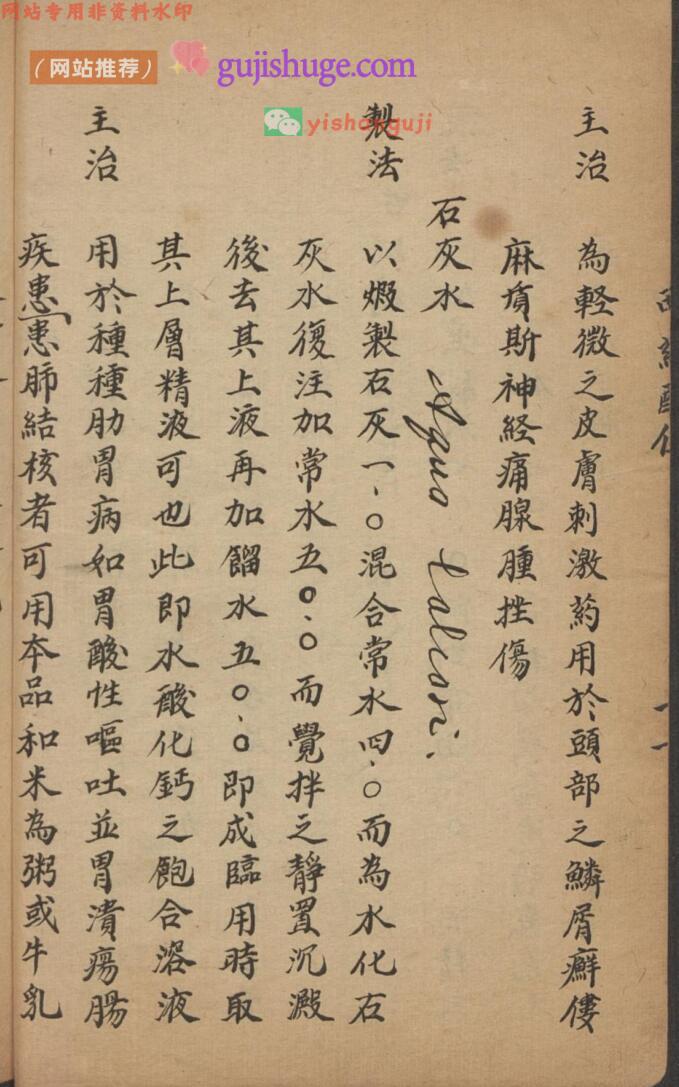 网站专用非资料水印
（网站推荐） gujishuge.com
yishanguji
主治 為軽微之皮膚刺激药用於頭部之鱗屑癬僂
麻質斯神経痛腺腫挫傷
石灰水 Aqua Calcari.
製法 以煆製石灰一、〇混合常水四、〇而為水化石
灰水復注加常水五〇、〇而覺拌之靜置沉澱
後去其上液再加餾水五〇、〇即成臨用時取
其上層精液可也此即水酸化鈣之飽合溶液
主治 用於種種肋胃病如胃酸性嘔吐並胃潰瘍腸
疾患患肺結核者可用本品和米為粥或牛乳
一一